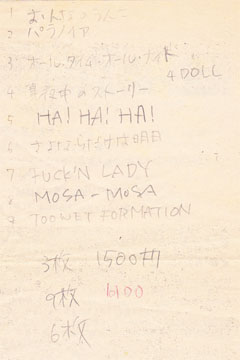 1 おんなのうんこ
2 パラノイア
3 オール・タイム・オール・ナイト
4 DOLL
4 真夜中のストーリー
5 HA! HA! HA!
6 さよならだけな明日
7 FUCK'N LADY
8 MOSA-MOSA
9 TOO WET FORMATION
3枚 1500
9枚
6枚